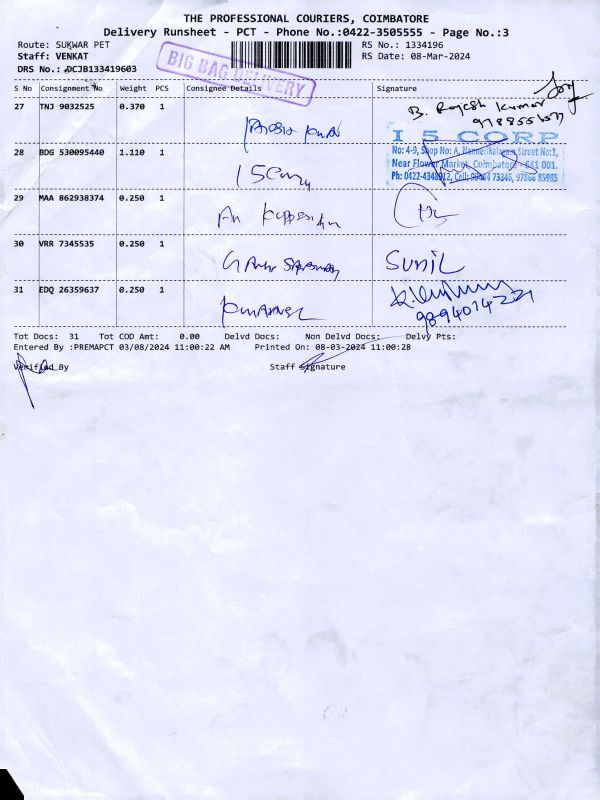 THE PROFESSIONAL COURIERS, COIMBATORE
Delivery Runsheet - PCT - Phone No.:0422-3505555 - Page No.:3
Route: SUKWAR PET
RS No.: 1334196
Staff: VENKAT
RS Date: 08-Mar-2024
DRS No.: DCJB133419603
BIG BAG DELIVERY
S No Consignment No Weight PCS Consignee Details Signature
27 TNJ 9032525 0.370 1
B. Rajesh Kumar
I 5 CORP
28 BDG 530095440 1.110 1 I 5 Corp
No: 4-9, Shop No: A, Street No:1,
Near Flower Market, Coimbatore - 641 001.
Ph: 0422-4348912, Cell: 73346, 97866 85985
29 MAA 862938374 0.250 1
30 VRR 7345535 0.250 1 SUNIL
31 EDQ 26359637 0.250 1
Tot Docs: 31 Tot COD Amt: 0.00 Delvd Docs: Non Delvd Docs: Delvy Pts:
Entered By :PREMAPCT 03/08/2024 11:00:22 AM Printed On: 08-03-2024 11:00:28
Verified By Staff Signature